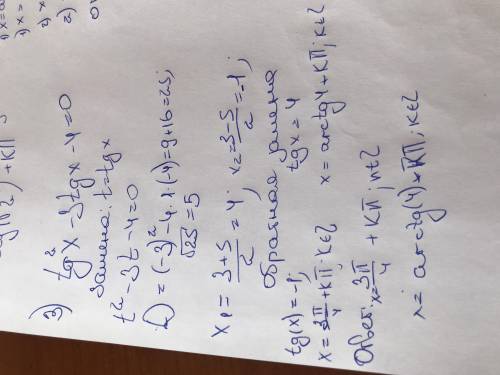 3) tg²x-3tgx-4=0
Замена: t=tgx
t²-3t-4=0
D=(-3)²-4·1·(-4)=9+16=25;
√25=5
x₁=3+5/2=4; x₂=3-5/2=-1;
Обратная замена
tg(x)=-1; tgx=4
x=3π/4+Kπ; K∈Z x=arctg4+Kπ; K∈Z
Ответ: x=3π/4+Kπ; n∈Z
x=arctg(4)+Kπ; K∈Z